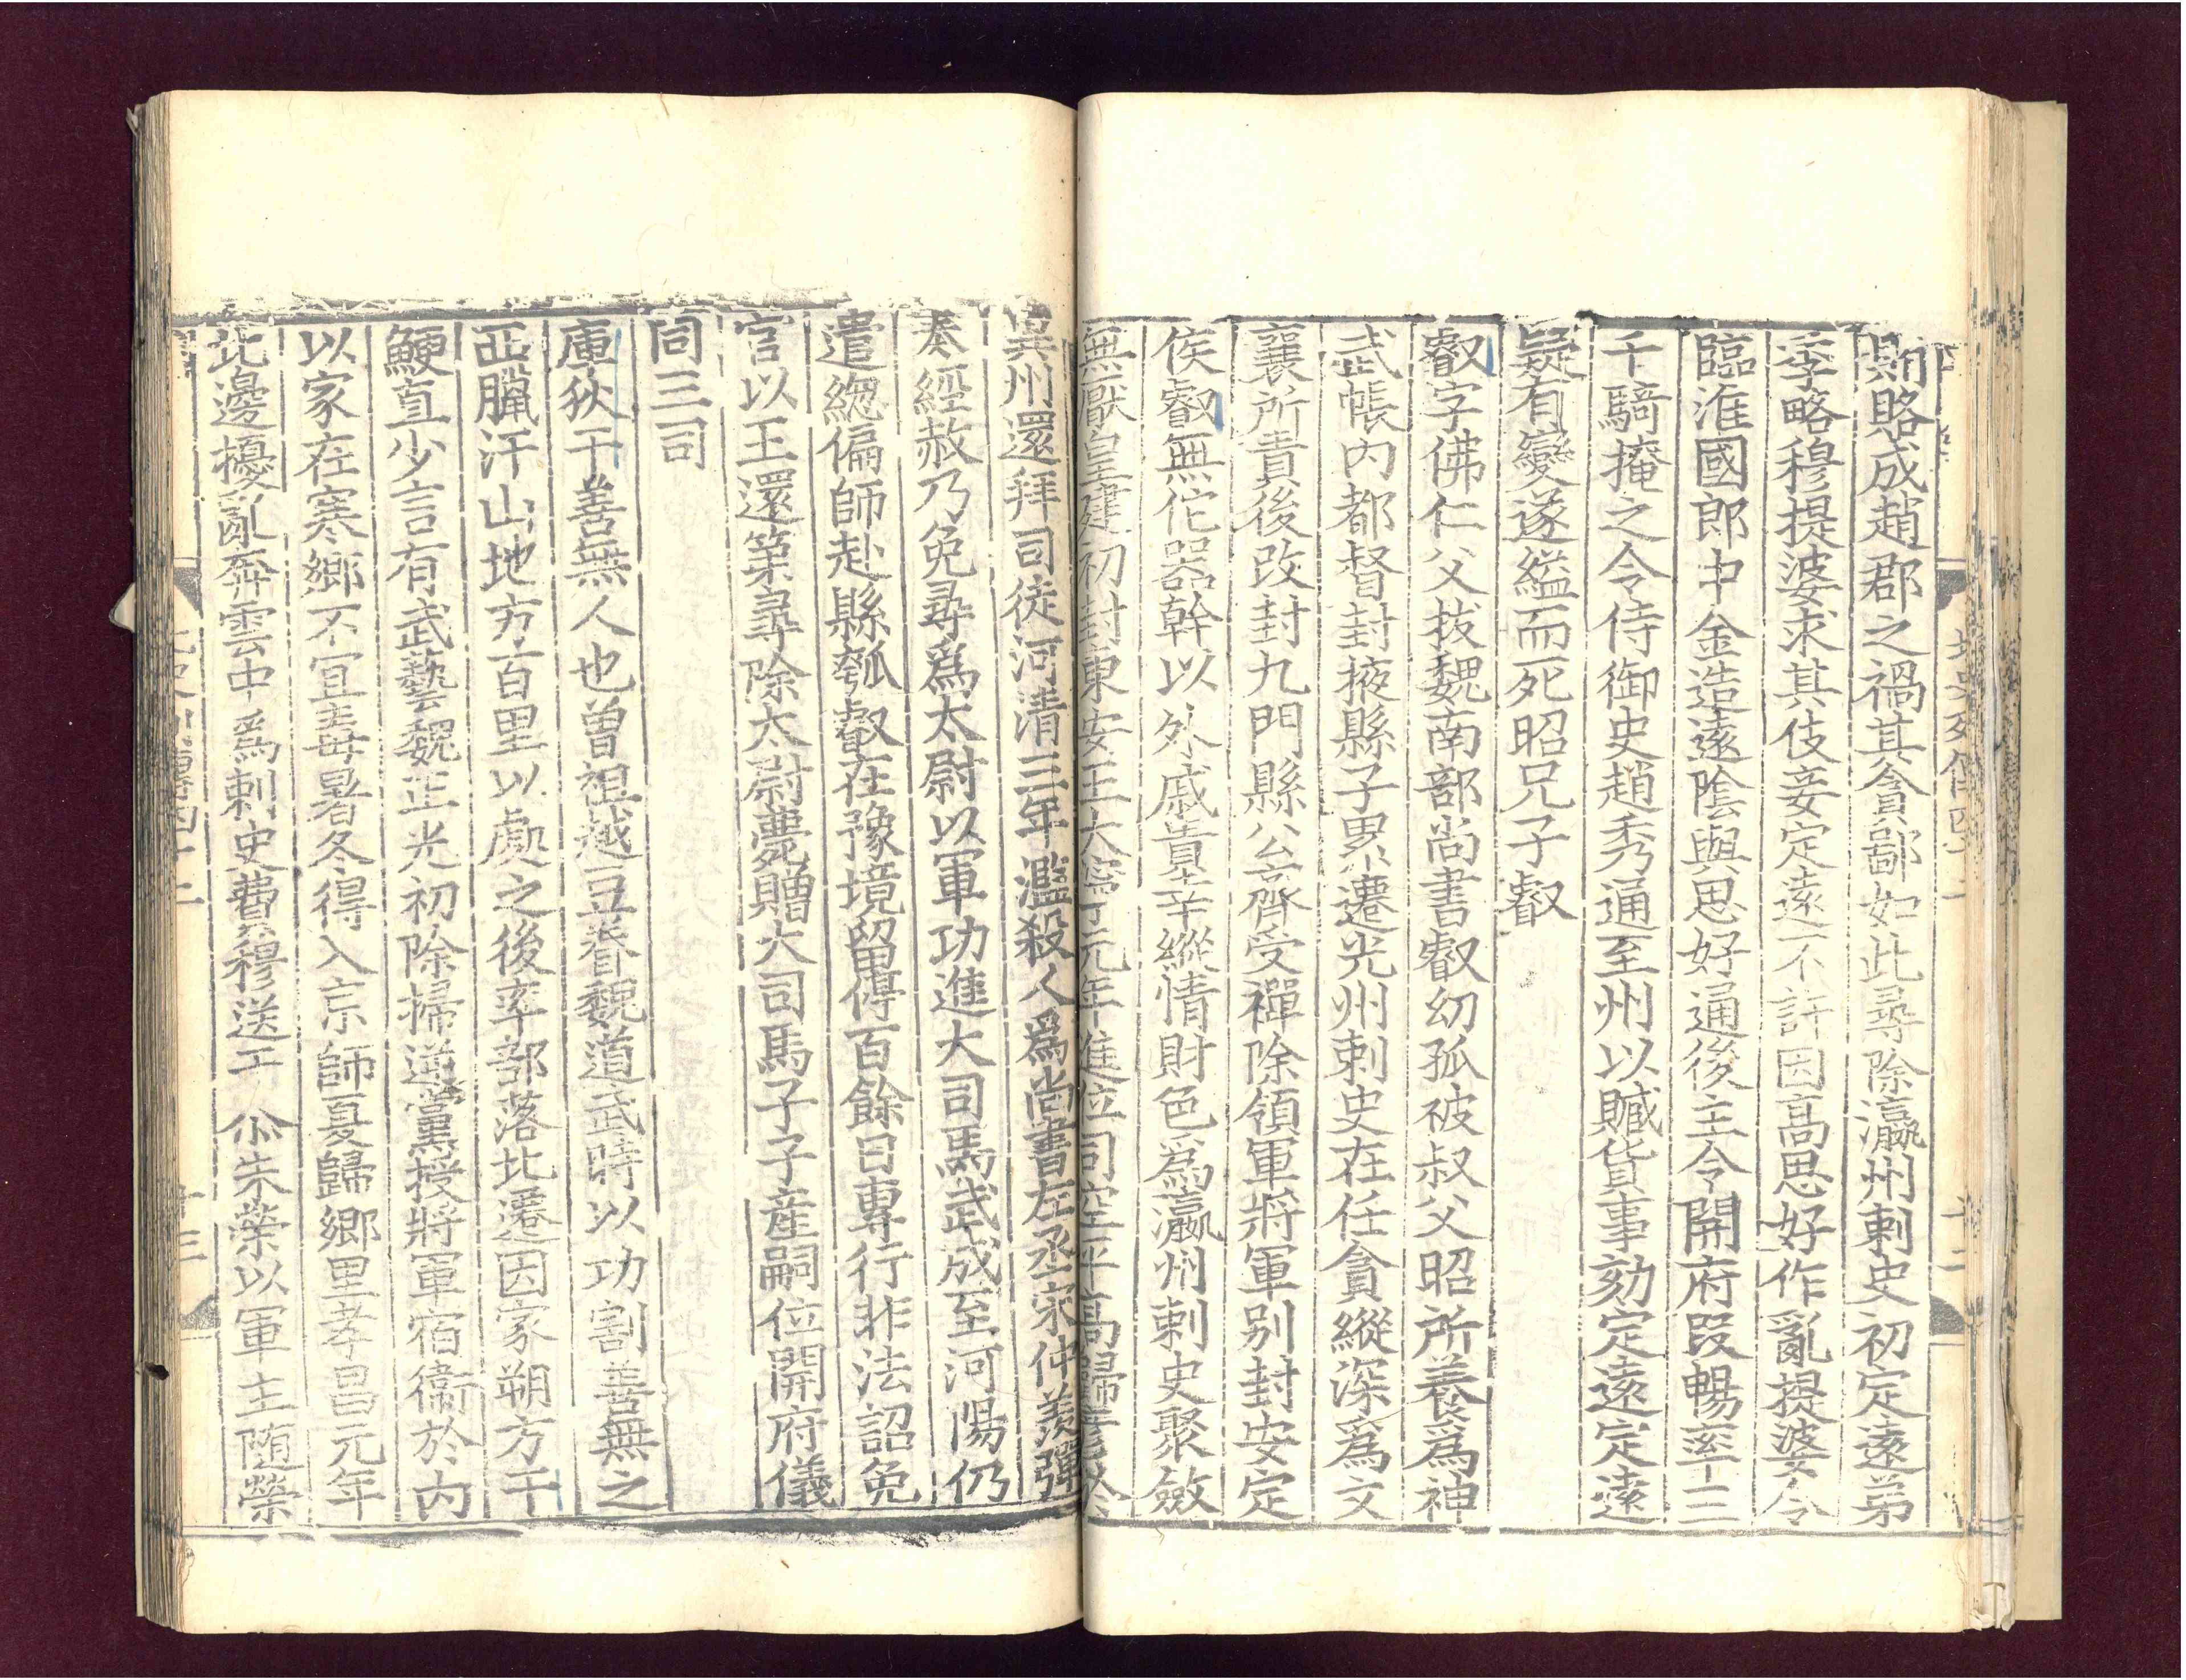 則賂成趙郡之禍其貪鄙如此尋除瀛州刺史初定遠弟
季略穆提婆求其伎妾定遠不許因高思好作亂提婆令
臨淮國郎中金造遠陰與思好通後主令開府段暢率三
千騎掩之令侍御史趙秀通至州以贓貨事劾定遠定遠
疑有變遂縊而死昭兄子叡
叡字佛仁父拔魏南部尚書叡幼孤被叔父昭所養爲神
武帳内都督封掖縣子累遷光州刺史在任貪縱深爲文
襄所責後改封九門縣公齊受禪除領軍將軍别封安定
侯叡無佗器幹以外戚貴幸縱情財色爲瀛州刺史聚斂
無厭皇建初封東安王大寧元年進位司空平高歸彦於
兾州還拜司徒河清三年濫殺人爲尚書左丞宋仲羨彈
奏經赦乃免尋爲太尉以軍功進大司馬武成至河陽仍
遣緫偏師赴縣瓠叡在豫境留停百餘日專行非法詔免
官以王還第尋除太尉薨贈大司馬子子産嗣位開府儀
同三司
庫狄干善無人也曾祖越豆眷魏道武時以功割善無之
西臘汗山地方百里以處之後率部落北遷因家朔方干
鯁直少言有武藝魏正光初除掃逆黨授將軍宿衞於内
以家在寒鄉不宜毒暑冬得入京師夏歸鄉里孝昌元年
北邊擾亂奔雲中爲刺史費穆送于尒朱榮以軍主随榮